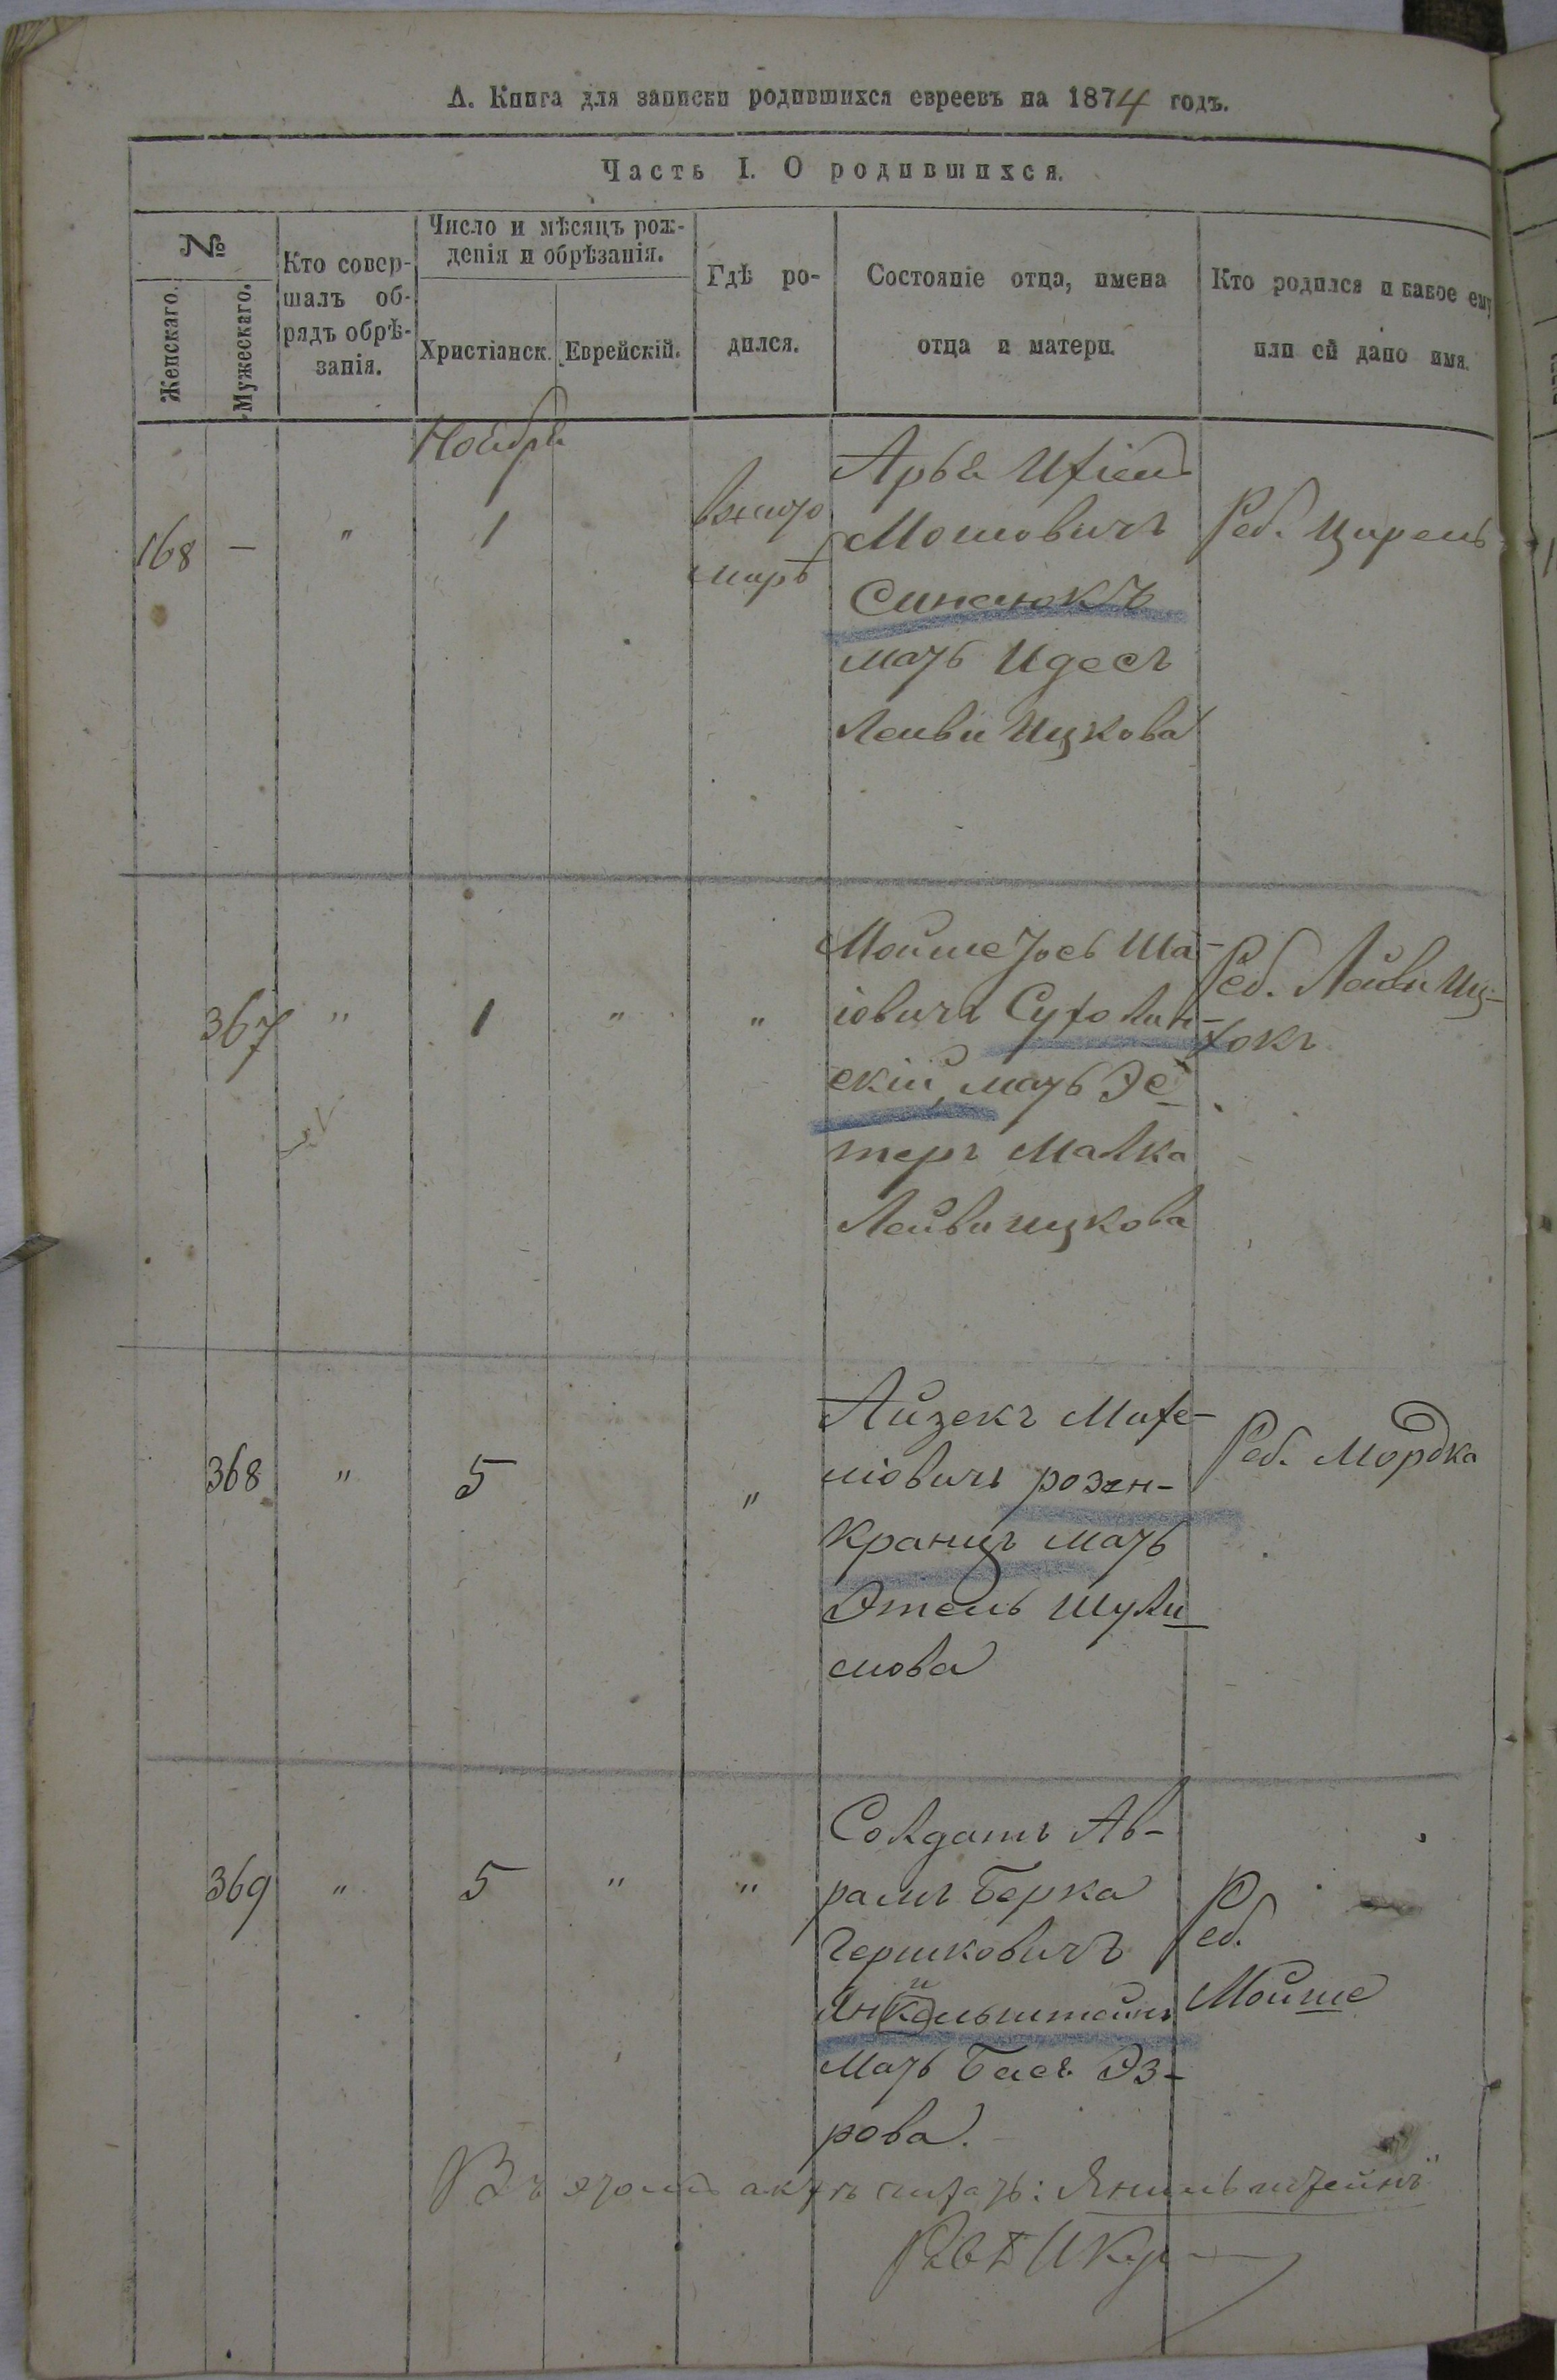 А. Книга для записки родившихся евреевъ на 1874 годъ.
Часть I. О родившихся.
№
Женскаго.
Мужескаго.
Кто совер-
шалъ об-
рядъ обрѣ-
занія.
Число и мѣсяцъ рож-
денія и обрѣзанія.
Христіанск.
Еврейскій.
Гдѣ ро-
дился.
Состояніе отца, имена
отца и матери.
Кто родился и какое ему
или ей дано имя.
Ноября
168 — " 1
въ Жито
мирѣ
Арья
Мошовичъ
Синенокъ
мать Идесъ
Лейви Ицкова
Реб. Цирель
367 " 1 " "
Мойше Јось Ша-
іовичъ Сухолин-
скій, мать Эс-
теръ Малка
Лейви ицкова
Реб. Лейви Иц-
хокъ
368 " 5 "
Айзекъ Михе-
ліовичъ розен-
кранцъ мать
Этель Шули-
мова
Реб. Мордка
369 " 5 " "
Солдатъ Ав-
рамъ Берка
Гершковичъ
и
Ян(ке)льштейнъ
мать Бася Эз-
рова.
Реб.
Мойше
Въ этомъ актѣ читать: Янильштейнъ"